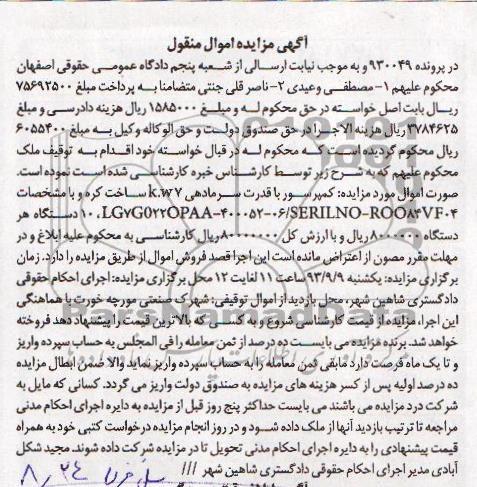 آگهی مزایده اموال منقول
در پرونده ۹۳۰۰۴۹ و به موجب نیابت ارسالی از شعبه پنجم دادگاه عمومی حقوقی اصفهان
محکوم علیهم ۱- مصطفی وعیدی ۲- ناصر قلی جنتی متضامنا به پرداخت مبلغ ۷۵۶۹۲۵۰۰
ریال بابت اصل خواسته در حق محکوم له و مبلغ ۱۵۸۵۰۰۰ ریال هزینه دادرسی و مبلغ
۳۷۸۴۶۲۵ ریال هزینه الاجرا در حق صندوق دولت و حق الوکاله وکیل به مبلغ ۶۰۵۵۴۰۰
ریال محکوم گردیده است که محکوم له در قبال خواسته خود اقدام به توقیف ملک
محکوم علیهم که به شرح زیر توسط کارشناس خبره کارشناسی شده است نموده است.
صورت اموال مورد مزایده: کمپرسور با قدرت سرمادهی k.w۷ ساخت کره و با مشخصات
LG۷G۰۲۲OPAA-۴۰۰۰۵۲-۰۶/SERILNO-ROO۸۴VF۰۴، ۱۰ دستگاه هر
دستگاه ۸۰۰۰۰۰۰ ریال و با ارزش کل ۸۰۰۰۰۰۰۰ ریال کارشناسی به محکوم علیه ابلاغ و در
مهلت مقرر مصون از اعتراض مانده است این اجرا قصد فروش اموال از طریق مزایده را دارد. زمان
برگزاری مزایده: یکشنبه ۹۳/۹/۹ ساعت ۱۱ لغایت ۱۲ محل برگزاری مزایده: اجرای احکام حقوقی
دادگستری شاهین شهر، محل بازدید از اموال توقیفی: شهرک صنعتی مورچه خورت با هماهنگی
این اجرا، مزایده از قیمت کارشناسی شروع و به کسی که بالاترین قیمت را پیشنهاد دهد فروخته
خواهد شد. برنده مزایده می بایست ده درصد از ثمن معامله را فی المجلس به حساب سپرده واریز
و تا یک ماه فرصت دارد مابقی ثمن معامله را به حساب سپرده واریز نماید والا ضمن ابطال مزایده
ده درصد اولیه پس از کسر هزینه های مزایده به صندوق دولت واریز می گردد. کسانی که مایل به
شرکت درد مزایده می باشند می بایست حداکثر پنج روز قبل از مزایده به دایره اجرای احکام مدنی
مراجعه تا ترتیب بازدید آنها از ملک داده شود و در روز انجام مزایده درخواست کتبی خود به همراه
قیمت پیشنهادی را به دایره اجرای احکام مدنی تحویل تا در مزایده شرکت داده شوند. مجید شکل
آبادی مدیر اجرای احکام حقوقی دادگستری شاهین شهر ///
۸٫۲۴